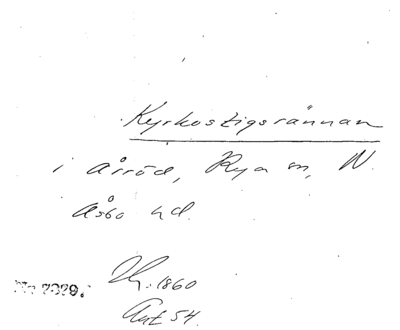 Kyrkostigsrännan
i Årröd, Rya sn, N.
Åsbo hd.
Hy. 1860
Avt 54.